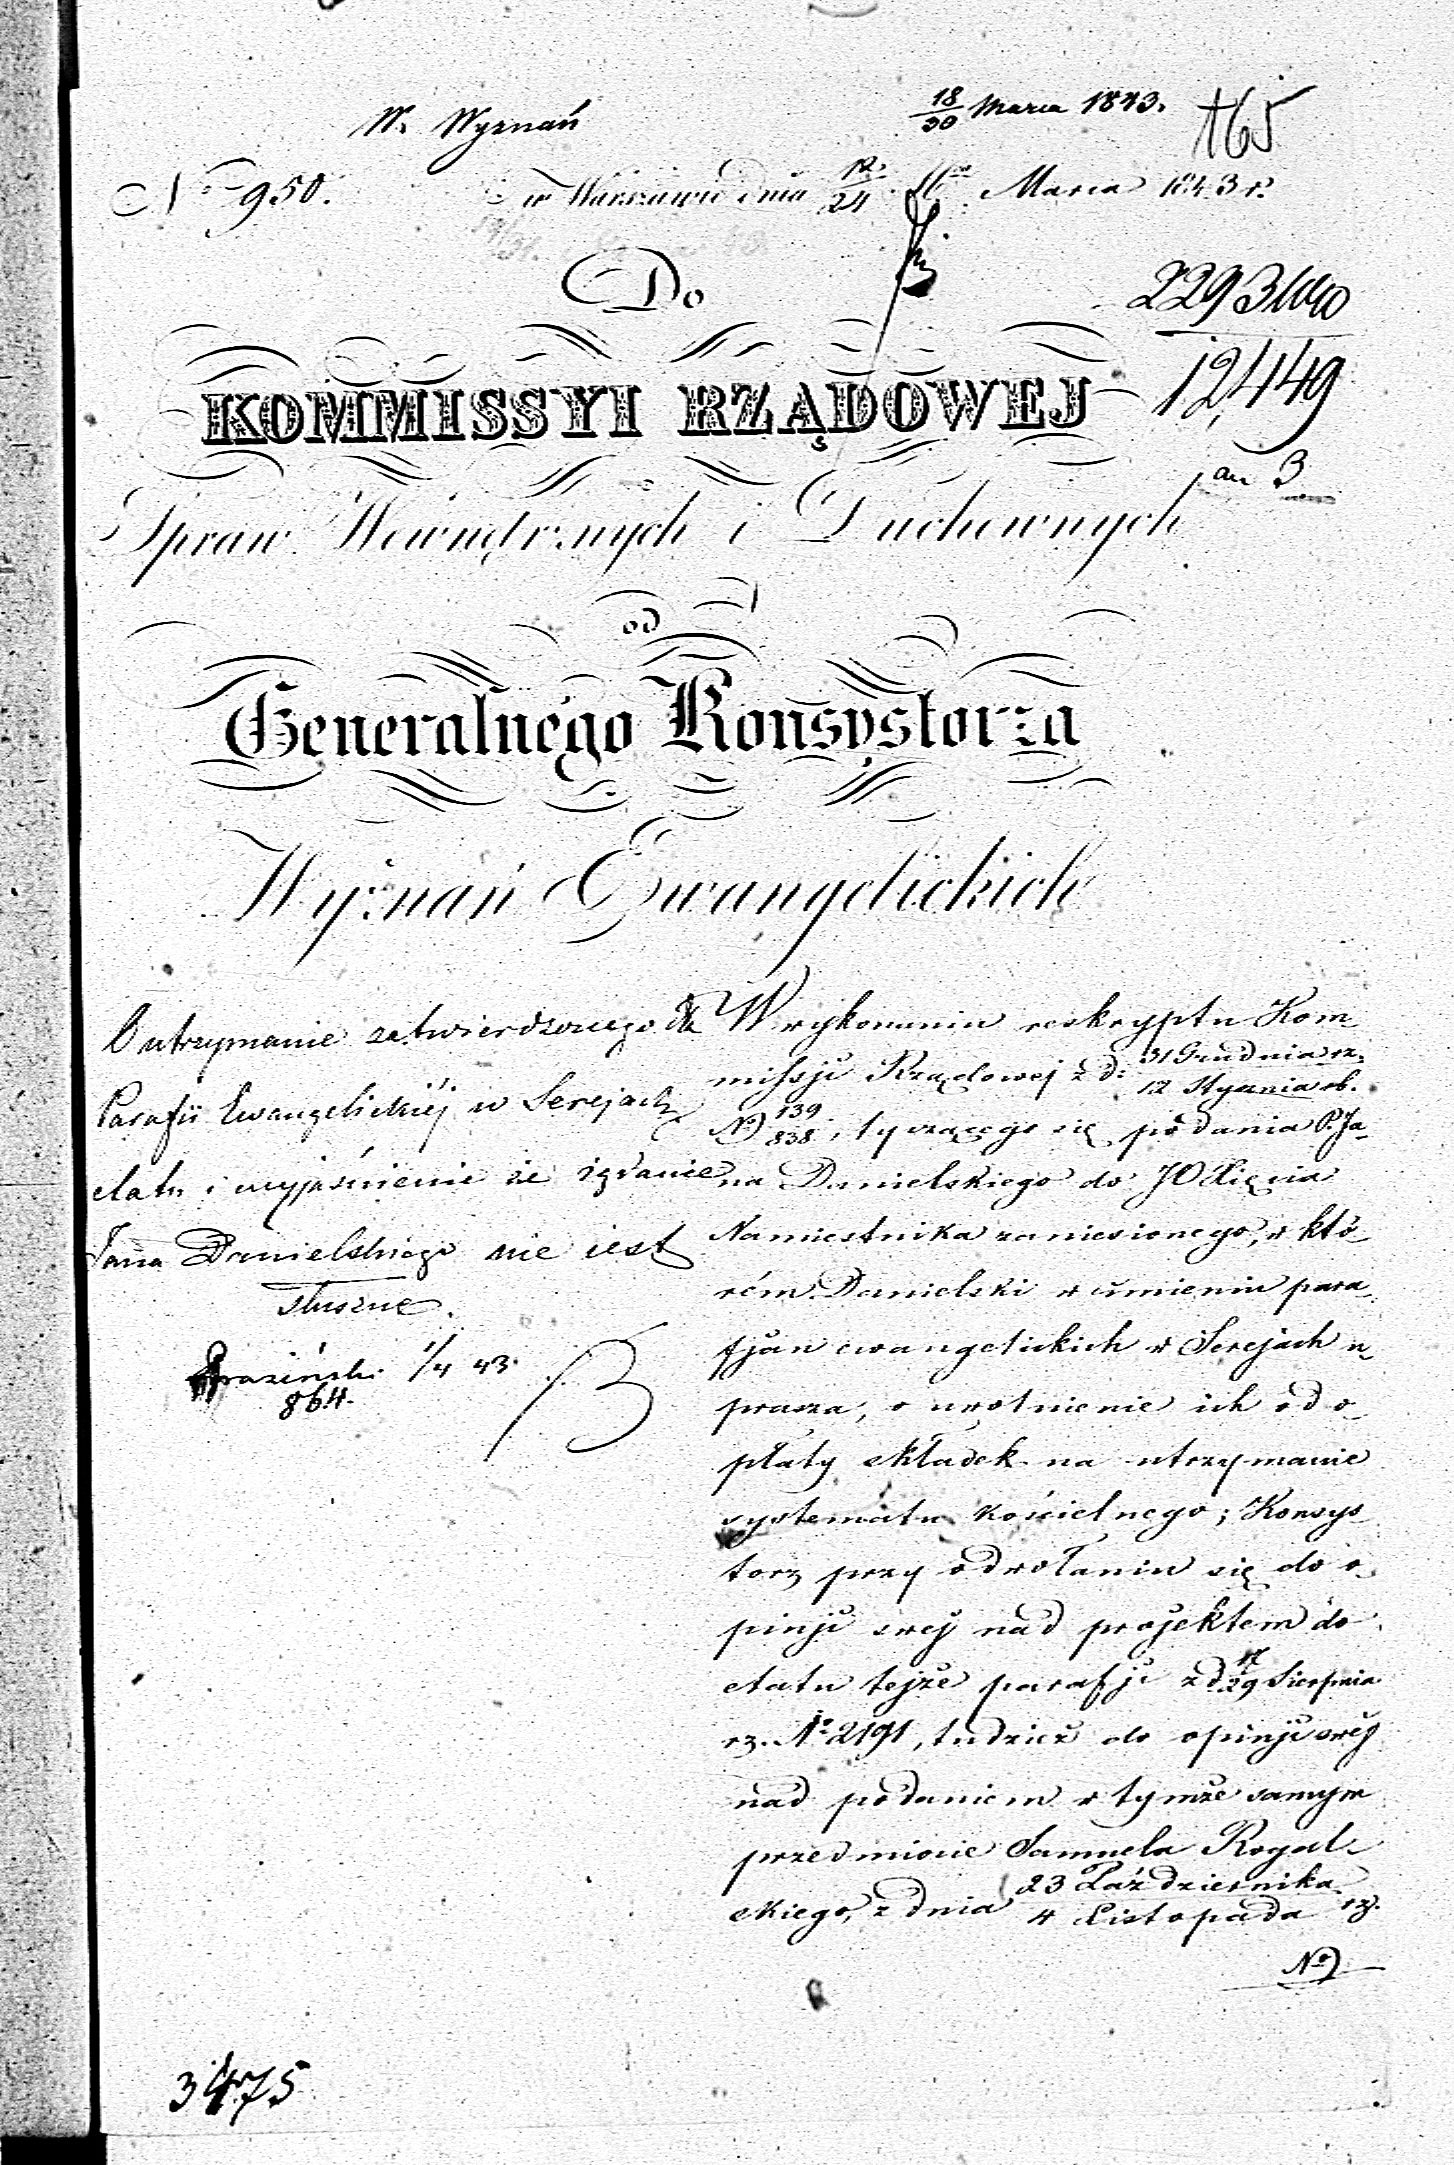 W. Wyznań
18/30 Marca 1843.
165
No 950.
w Warszawie dnia 12/24 Marca 1843 r.
Do
2293
12,449
KOMMISSYI RZĄDOWEJ
an 3
Spraw Wewnętrznych i Duchownych
od
Generalnego Konsystorza
Wyznań Ewangelickich
O utrzymanie zatwierdzonego dla
Parafii Ewangelickiéj w Serejach
etatu i wyjaśnienie że żądanie
Jana Danielskiego nie jest
słuszne.
1/4 43.
864.
W wykonaniu reskryptu Kom
missji Rządowej z d: 31 Grudnia rz. / 12 Stycznia rb.
No 139/838, tyczącego się podania P. Ja-
na Danielskiego do JO Xięcia
Namiestnika zaniesionego, w któ-
rém Danielski w imieniu para-
fjan ewangelickich w Serejach u-
prasza, o uwolnienie ich od o-
płaty składek na utrzymanie
systematu kościelnego; Konsys
torz przy odwołaniu się do o-
pinji swej nad projektem do
etatu tejże parafji z d. 17/29 Sierpnia
rz. No 2191, tudzież do opinji swéj
nad podaniem w tymże samym
przedmiocie Samuela Rogal-
skiego, z dnia 23 Października / 4 Listopada rz.
No
3475